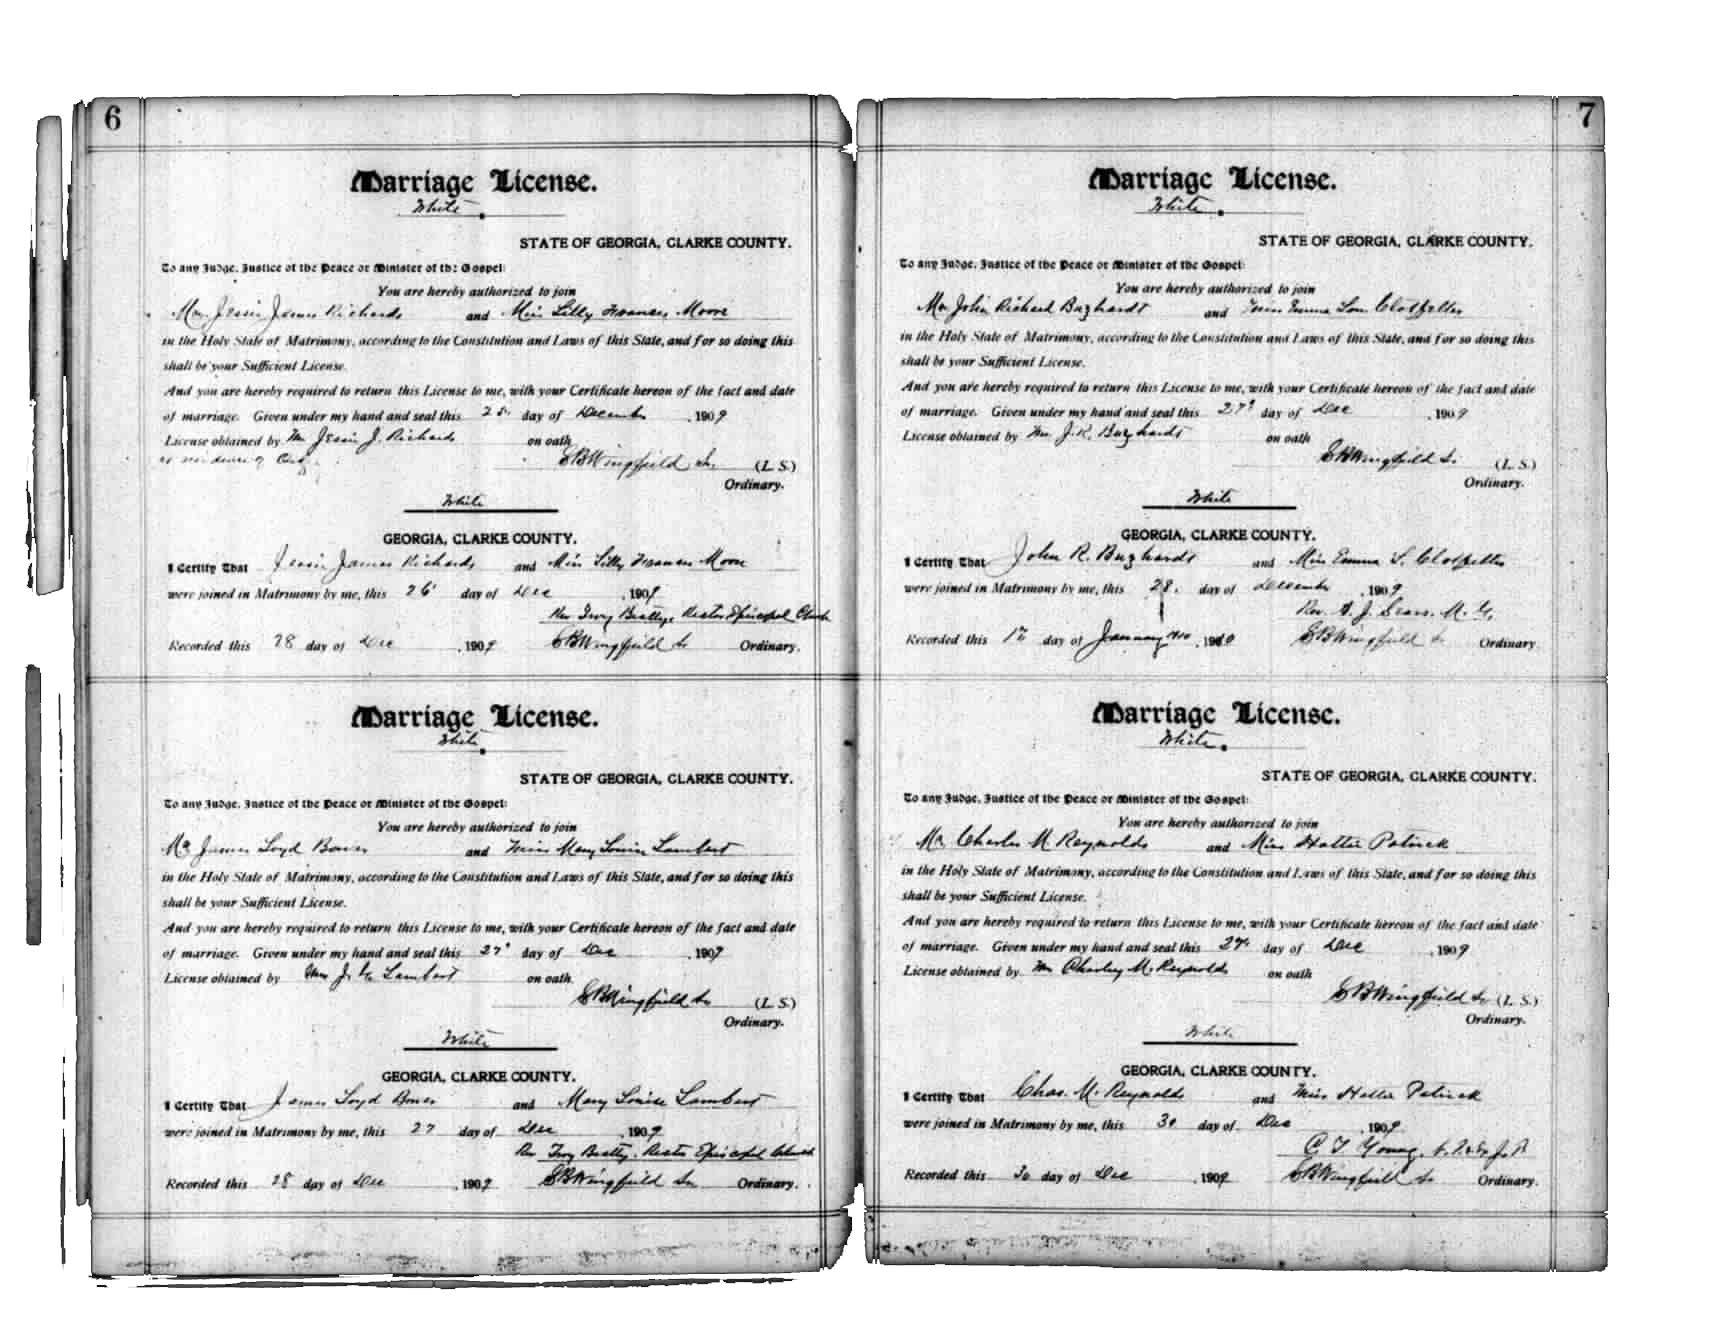 6
Marriage License.
White.
STATE OF GEORGIA, CLARKE COUNTY.
To any Judge, Justice of the Peace or Minister of the Gospel:
You are hereby authorized to join
Mr. Jessie James Richards and Miss Lilly Frances Moore
in the Holy State of Matrimony, according to the Constitution and Laws of this State, and for so doing this
shall be your Sufficient License.
And you are hereby required to return this License to me, with your Certificate hereon of the fact and date
of marriage. Given under my hand and seal this 25 day of December, 1909
License obtained by Mr Jessie J. Richards on oath
SB Wingfield Sr. (L. S.)
Ordinary.
White
GEORGIA, CLARKE COUNTY.
I Certify That Jessie James Richards and Miss Lilly Frances Moore
were joined in Matrimony by me, this 26 day of Dec, 1909
Rev Troy Beatty, Rector Episcopal Church
Recorded this 28 day of Dec, 1909 SB Wingfield Sr Ordinary.
Marriage License.
White.
STATE OF GEORGIA, CLARKE COUNTY.
To any Judge, Justice of the Peace or Minister of the Gospel:
You are hereby authorized to join
Mr James Loyd Bower and Miss Mary Louise Lambert
in the Holy State of Matrimony, according to the Constitution and Laws of this State, and for so doing this
shall be your Sufficient License.
And you are hereby required to return this License to me, with your Certificate hereon of the fact and date
of marriage. Given under my hand and seal this 27 day of Dec, 1909
License obtained by Lambert on oath
SB Wingfield Sr (L. S.)
Ordinary.
White
GEORGIA, CLARKE COUNTY.
I Certify That James Loyd Bower and Mary Louise Lambert
were joined in Matrimony by me, this 27 day of Dec, 1909
Rev Troy Beatty, Rector Episcopal Church
Recorded this 28 day of Dec, 1909 SB Wingfield Sr Ordinary.
7
Marriage License.
White.
STATE OF GEORGIA, CLARKE COUNTY.
To any Judge, Justice of the Peace or Minister of the Gospel:
You are hereby authorized to join
Mr John Richard Buzhardt and Miss Emma Lou Clotfelter
in the Holy State of Matrimony, according to the Constitution and Laws of this State, and for so doing this
shall be your Sufficient License.
And you are hereby required to return this License to me, with your Certificate hereon of the fact and date
of marriage. Given under my hand and seal this 27 day of Dec, 1909
License obtained by Mr J. R. Buzhardt on oath
SB Wingfield Sr (L. S.)
Ordinary.
White
GEORGIA, CLARKE COUNTY.
I Certify That John R. Buzhardt and Miss Emma L. Clotfelter
were joined in Matrimony by me, this 28. day of December, 1909
Rev. J. Sears. M. G.
Recorded this day of January 1910 SB Wingfield Sr Ordinary
Marriage License.
White.
STATE OF GEORGIA, CLARKE COUNTY.
To any Judge, Justice of the Peace or Minister of the Gospel:
You are hereby authorized to join
Mr Charles M. Reynolds and Miss Hattie Patrick
in the Holy State of Matrimony, according to the Constitution and Laws of this State, and for so doing this
shall be your Sufficient License.
And you are hereby required to return this License to me, with your Certificate hereon of the fact and date
of marriage. Given under my hand and seal this 27 day of Dec, 1909
License obtained by Mr Charley M. Reynolds on oath
SB Wingfield Sr (L. S.)
Ordinary.
White
GEORGIA, CLARKE COUNTY.
I Certify That Chas. M. Reynolds and Miss Hattie Patrick
were joined in Matrimony by me, this 30 day of Dec, 1909
C T Young,
Recorded this 30 day of Dec, 1909 SB Wingfield Sr Ordinary.